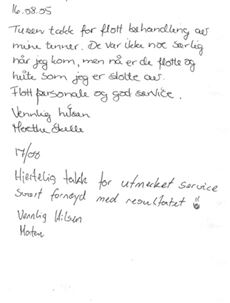 16.08.05
Tusen takk for flott behandling av
mine tenner. De var ikke noe særlig
når jeg kom, men nå er de flotte og
hvite som jeg er stolte av.
Flott personale og god service.
Vennlig hilsen
17/08
Hjertelig takk for utmerket service
Svært fornøyd med resultatet
Vennlig Hilsen